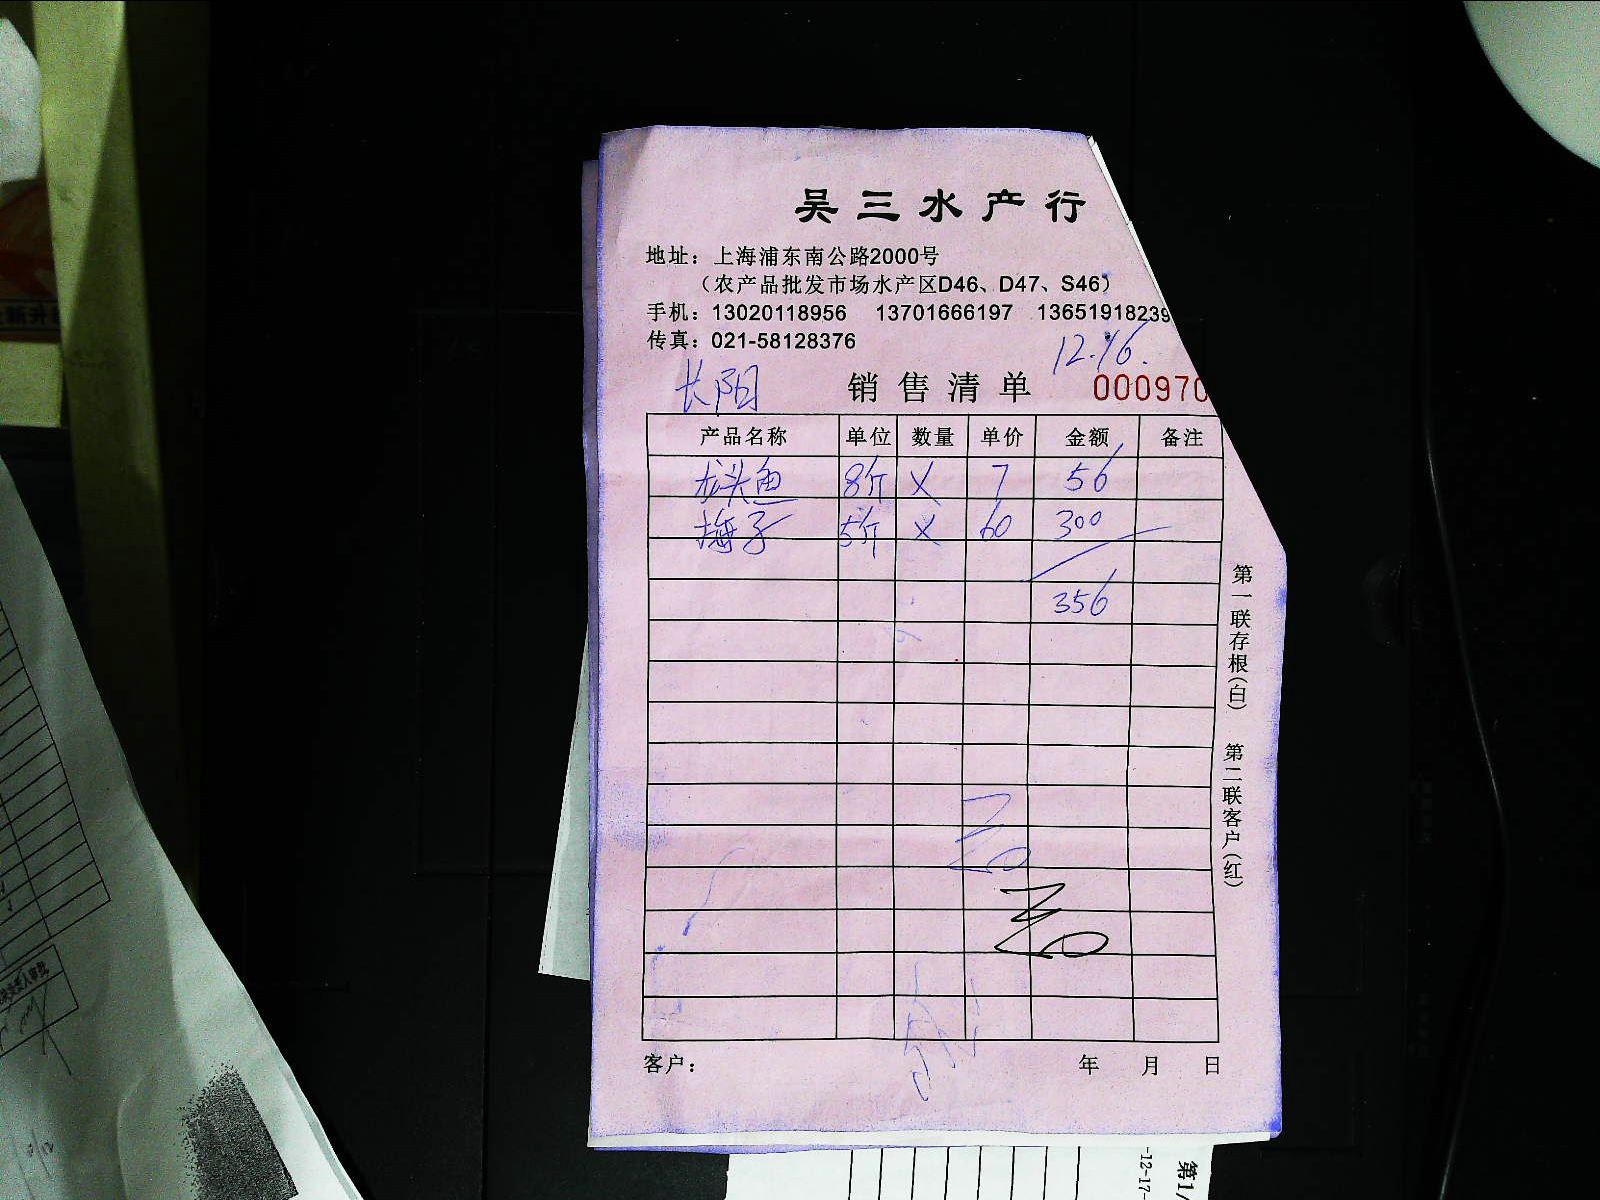 吴三水产行
地址：上海浦东南公路2000号
（农产品批发市场水产区D46、D47、S46）
手机：13020118956 13701666197 13651918239
传真：021-58128376
12.16.
长阳 销售清单 000970
产品名称 单位 数量 单价 金额 备注
龙头鱼 8斤 × 7 56
梅子 5斤 × 60 300
356
第一联存根(白) 第二联客户(红)
客户： 年 月 日
-12-17-
第1/